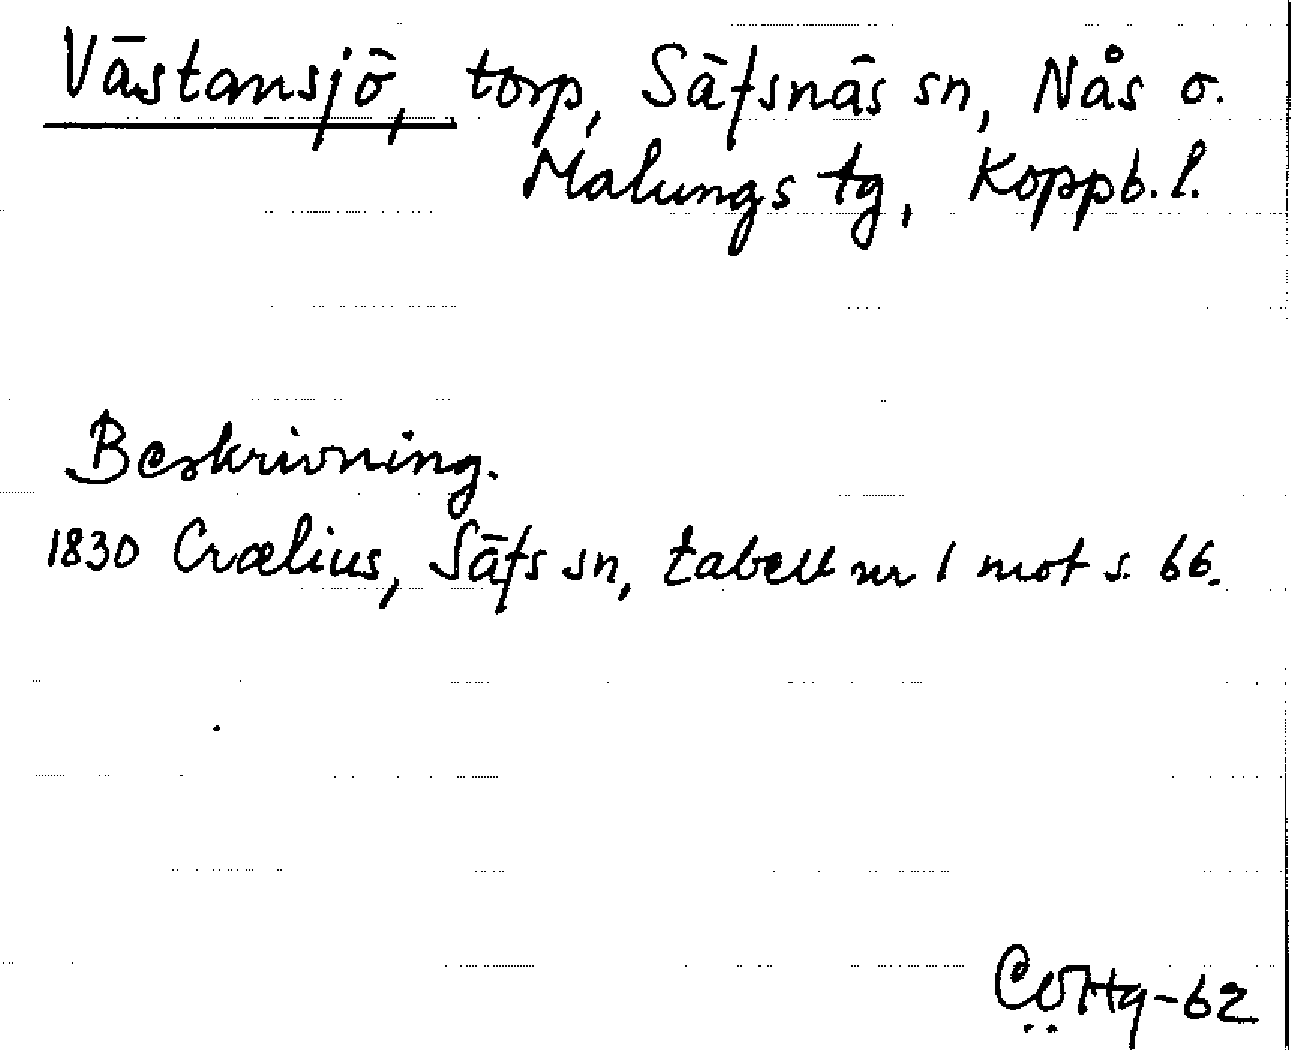 Västansjö, torp, Säfsnäs sn, Nås o.
Malungs tg, Koppb. l.
Beskrivning.
1830 Crælius, Säfs sn, tabell nr 1 mot s. 66.